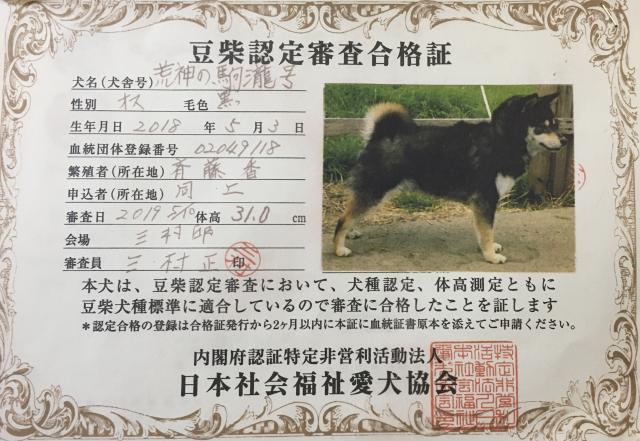 豆柴認定審査合格証
犬名(犬舎号) 荒神の駒瀧号
性別 オス 毛色 黒
生年月日 2018 年 5 月 3 日
血統団体登録番号 02049118
繁殖者(所在地) 斉藤香
申込者(所在地) 同上
審査日 2019 5/10 体高 31.0 cm
会場 三村邸
審査員 三村正 印
本犬は、豆柴認定審査において、犬種認定、体高測定ともに
豆柴犬種標準に適合しているので審査に合格したことを証します
*認定合格の登録は合格証発行から2ヶ月以内に本証に血統証書原本を添えてご申請ください。
内閣府認証特定非営利活動法人
日本社会福祉愛犬協会